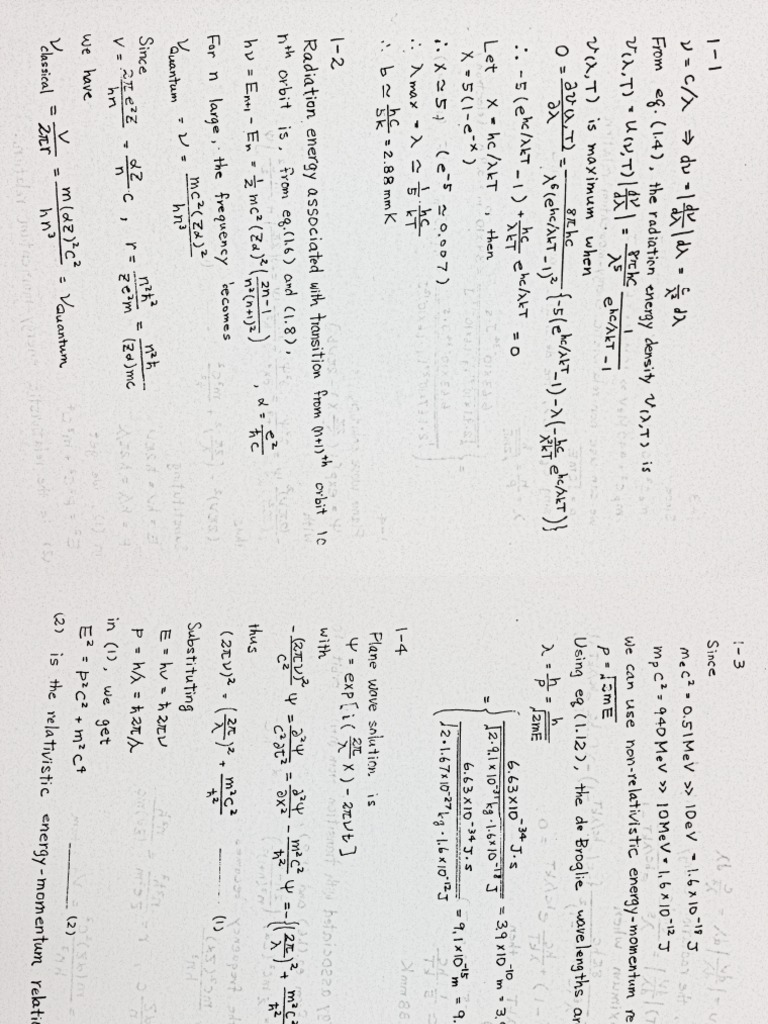 1-1
ν = c/λ ⇒ dν = |dν/dλ| dλ = c/λ² dλ
From eq. (1.4), the radiation energy density v(λ,T) is
v(λ,T) = U(ν,T) |dν/dλ| = 8πhc/λ⁵ 1/(e^{hc/λkT} - 1)
v(λ,T) is maximum when
0 = ∂v(λ,T)/∂λ = 8πhc/(λ⁶(e^{hc/λkT} - 1)²) {-5(e^{hc/λkT} - 1) - λ(-hc/λ²kT e^{hc/λkT})}
∴ -5(e^{hc/λkT} - 1) + hc/λkT e^{hc/λkT} = 0
Let x = hc/λkT, then
x = 5(1 - e^{-x})
∴ x ≃ 5, (e^{-5} ≃ 0.007)
∴ λmax = λ ≃ 1/5 hc/kT
∴ b ≃ hc/5k = 2.88 mmK
1-2
Radiation energy associated with transition from (n+1)th orbit to
nth orbit is, from eq.(1.6) and (1.8),
hν = En+1 - En = 1/2 mc²(Zα)² (2n-1/n²(n+1)²), α = e²/ħc
For n large, the frequency becomes
νQuantum = ν = mc²(Zα)²/hn³
Since
V = 2πe²Z/hn = αZ/n c, r = n²ħ²/Ze²m = n²ħ/(Zα)mc
We have
νclassical = V/2πr = m(αZ)²c²/hn³ = νQuantum
1-3
Since
mec² = 0.51 MeV >> 10eV = 1.6×10⁻¹⁸ J
mpc² = 940 MeV >> 10MeV = 1.6×10⁻¹² J
We can use non-relativistic energy-momentum re
p = √2mE
Using eq (1.12), the de Broglie wavelengths ar
λ = h/p = h/√2mE
= { 6.63×10⁻³⁴ J·s/√2·9.1×10⁻³¹ kg·1.6×10⁻¹⁸ J = 3.9×10⁻¹⁰ m = 3.9
6.63×10⁻³⁴ J·s/√2·1.67×10⁻²⁷ kg·1.6×10⁻¹² J = 9.1×10⁻¹⁵ m = 9.
1-4
Plane wave solution is
Ψ = exp[i(2π/λ x) - 2πνt]
with
-(2πν)²/c² Ψ = ∂²Ψ/c²∂t² = ∂²Ψ/∂x² - m²c²/ħ² Ψ = -{(2π/λ)² + m²c²/ħ²
thus
(2πν)² = (2π/λ)² + m²c²/ħ² (1)
Substituting
E = hν = ħ2πν
P = h/λ = ħ2π/λ
in (1), we get
E² = p²c² + m²c⁴ (2)
(2) is the relativistic energy-momentum relatio